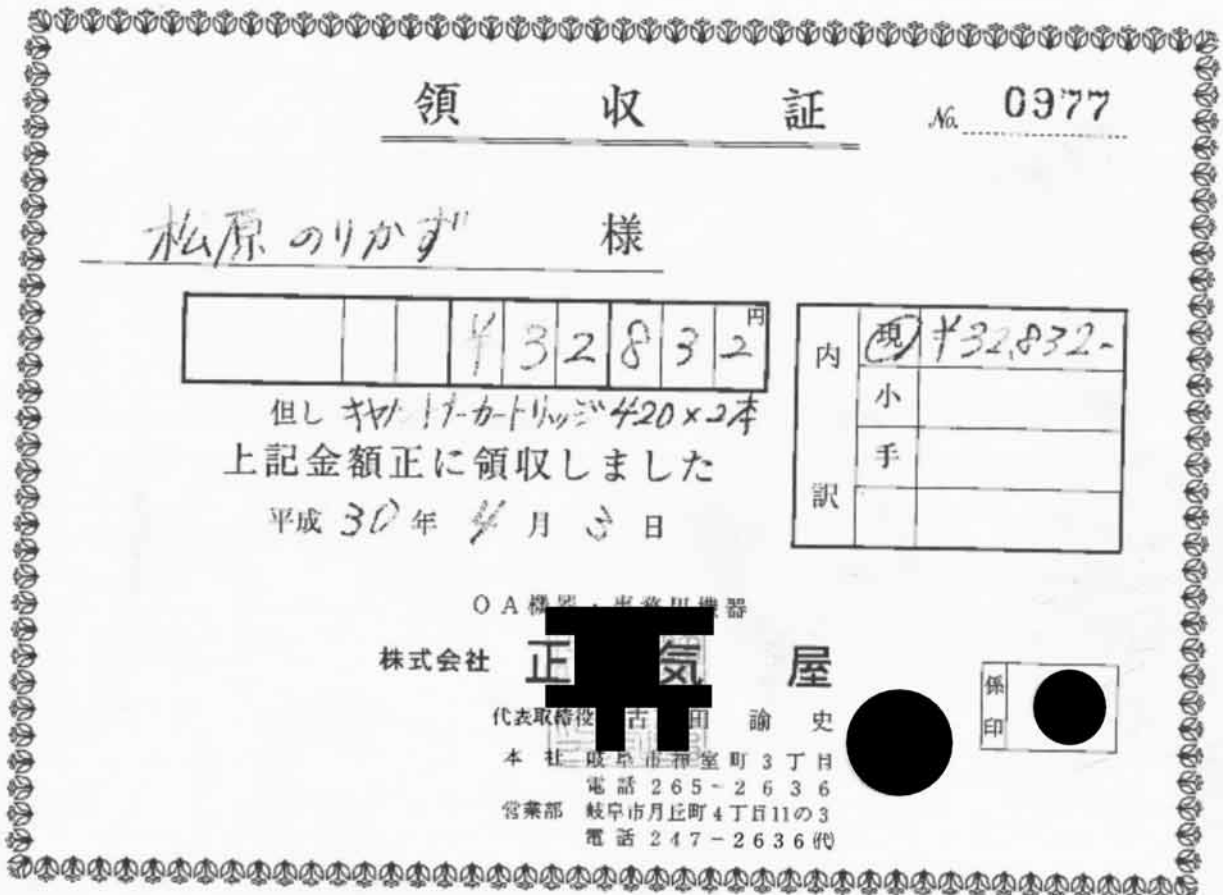 領収証 No. 0977
松原 のりかず 様
¥32832円
但し キヤノントナーカートリッジ420×2本
上記金額正に領収しました
平成30年4月3日
内訳
現 ¥32,832-
小
手
OA機器・事務用機器
株式会社 正 気屋
代表取締役 古田諭史
本社 岐阜市神室町3丁目
電話 265-2636
営業部 岐阜市月丘町4丁目11の3
電話 247-2636代
係印